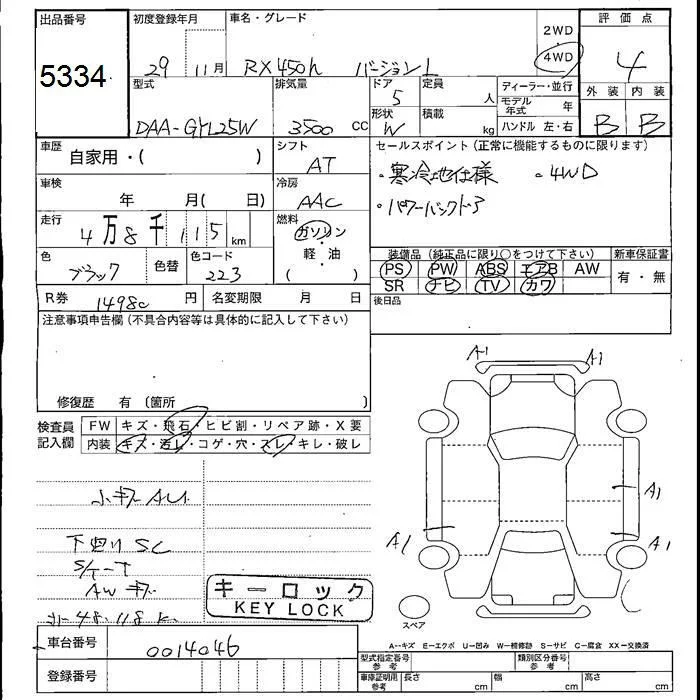 出品番号
5334
初度登録年月
29 11月
車名・グレード
RX450h バージョンL
2WD
4WD
評価点
4
外装 内装
B B
型式
DAA-GYL25W
排気量
3500 CC
ドア
5
形状
W
定員
人
積載
kg
ディーラー・並行
モデル年式 年
ハンドル 左・右
車歴
自家用・( )
シフト
AT
セールスポイント(正常に機能するものに限ります)
・寒冷地仕様 ・4WD
・パワーバックドア
車検
年 月( 日)
冷房
AAC
走行
4万8千115 km
燃料
ガソリン
軽・油
( )
色
ブラック
色替
色コード
223
装備品(純正品に限り○をつけて下さい)
PS PW ABS エアB AW
SR ナビ TV カワ
新車保証書
有・無
後日品
R券
円
名変期限 月 日
注意事項申告欄(不具合内容等は具体的に記入して下さい)
修復歴 有(箇所 )
検査員記入欄
FW キズ・飛石・ヒビ割・リペア跡・X要
内装 キズ・汚レ・コゲ・穴・スレ・キレ・破レ
小キズ AU
下回り SC
AW キズ
キーロック
KEY LOCK
A1 A1
A1
A1 A1
スペア
A--キズ E--エクボ U--凹み W--補修跡 S--サビ C--腐食 XX--交換済
車台番号
0014046
登録番号
型式指定番号 参考
類別区分番号 参考
車庫証明用 参考
長さ cm
幅 cm
高さ cm